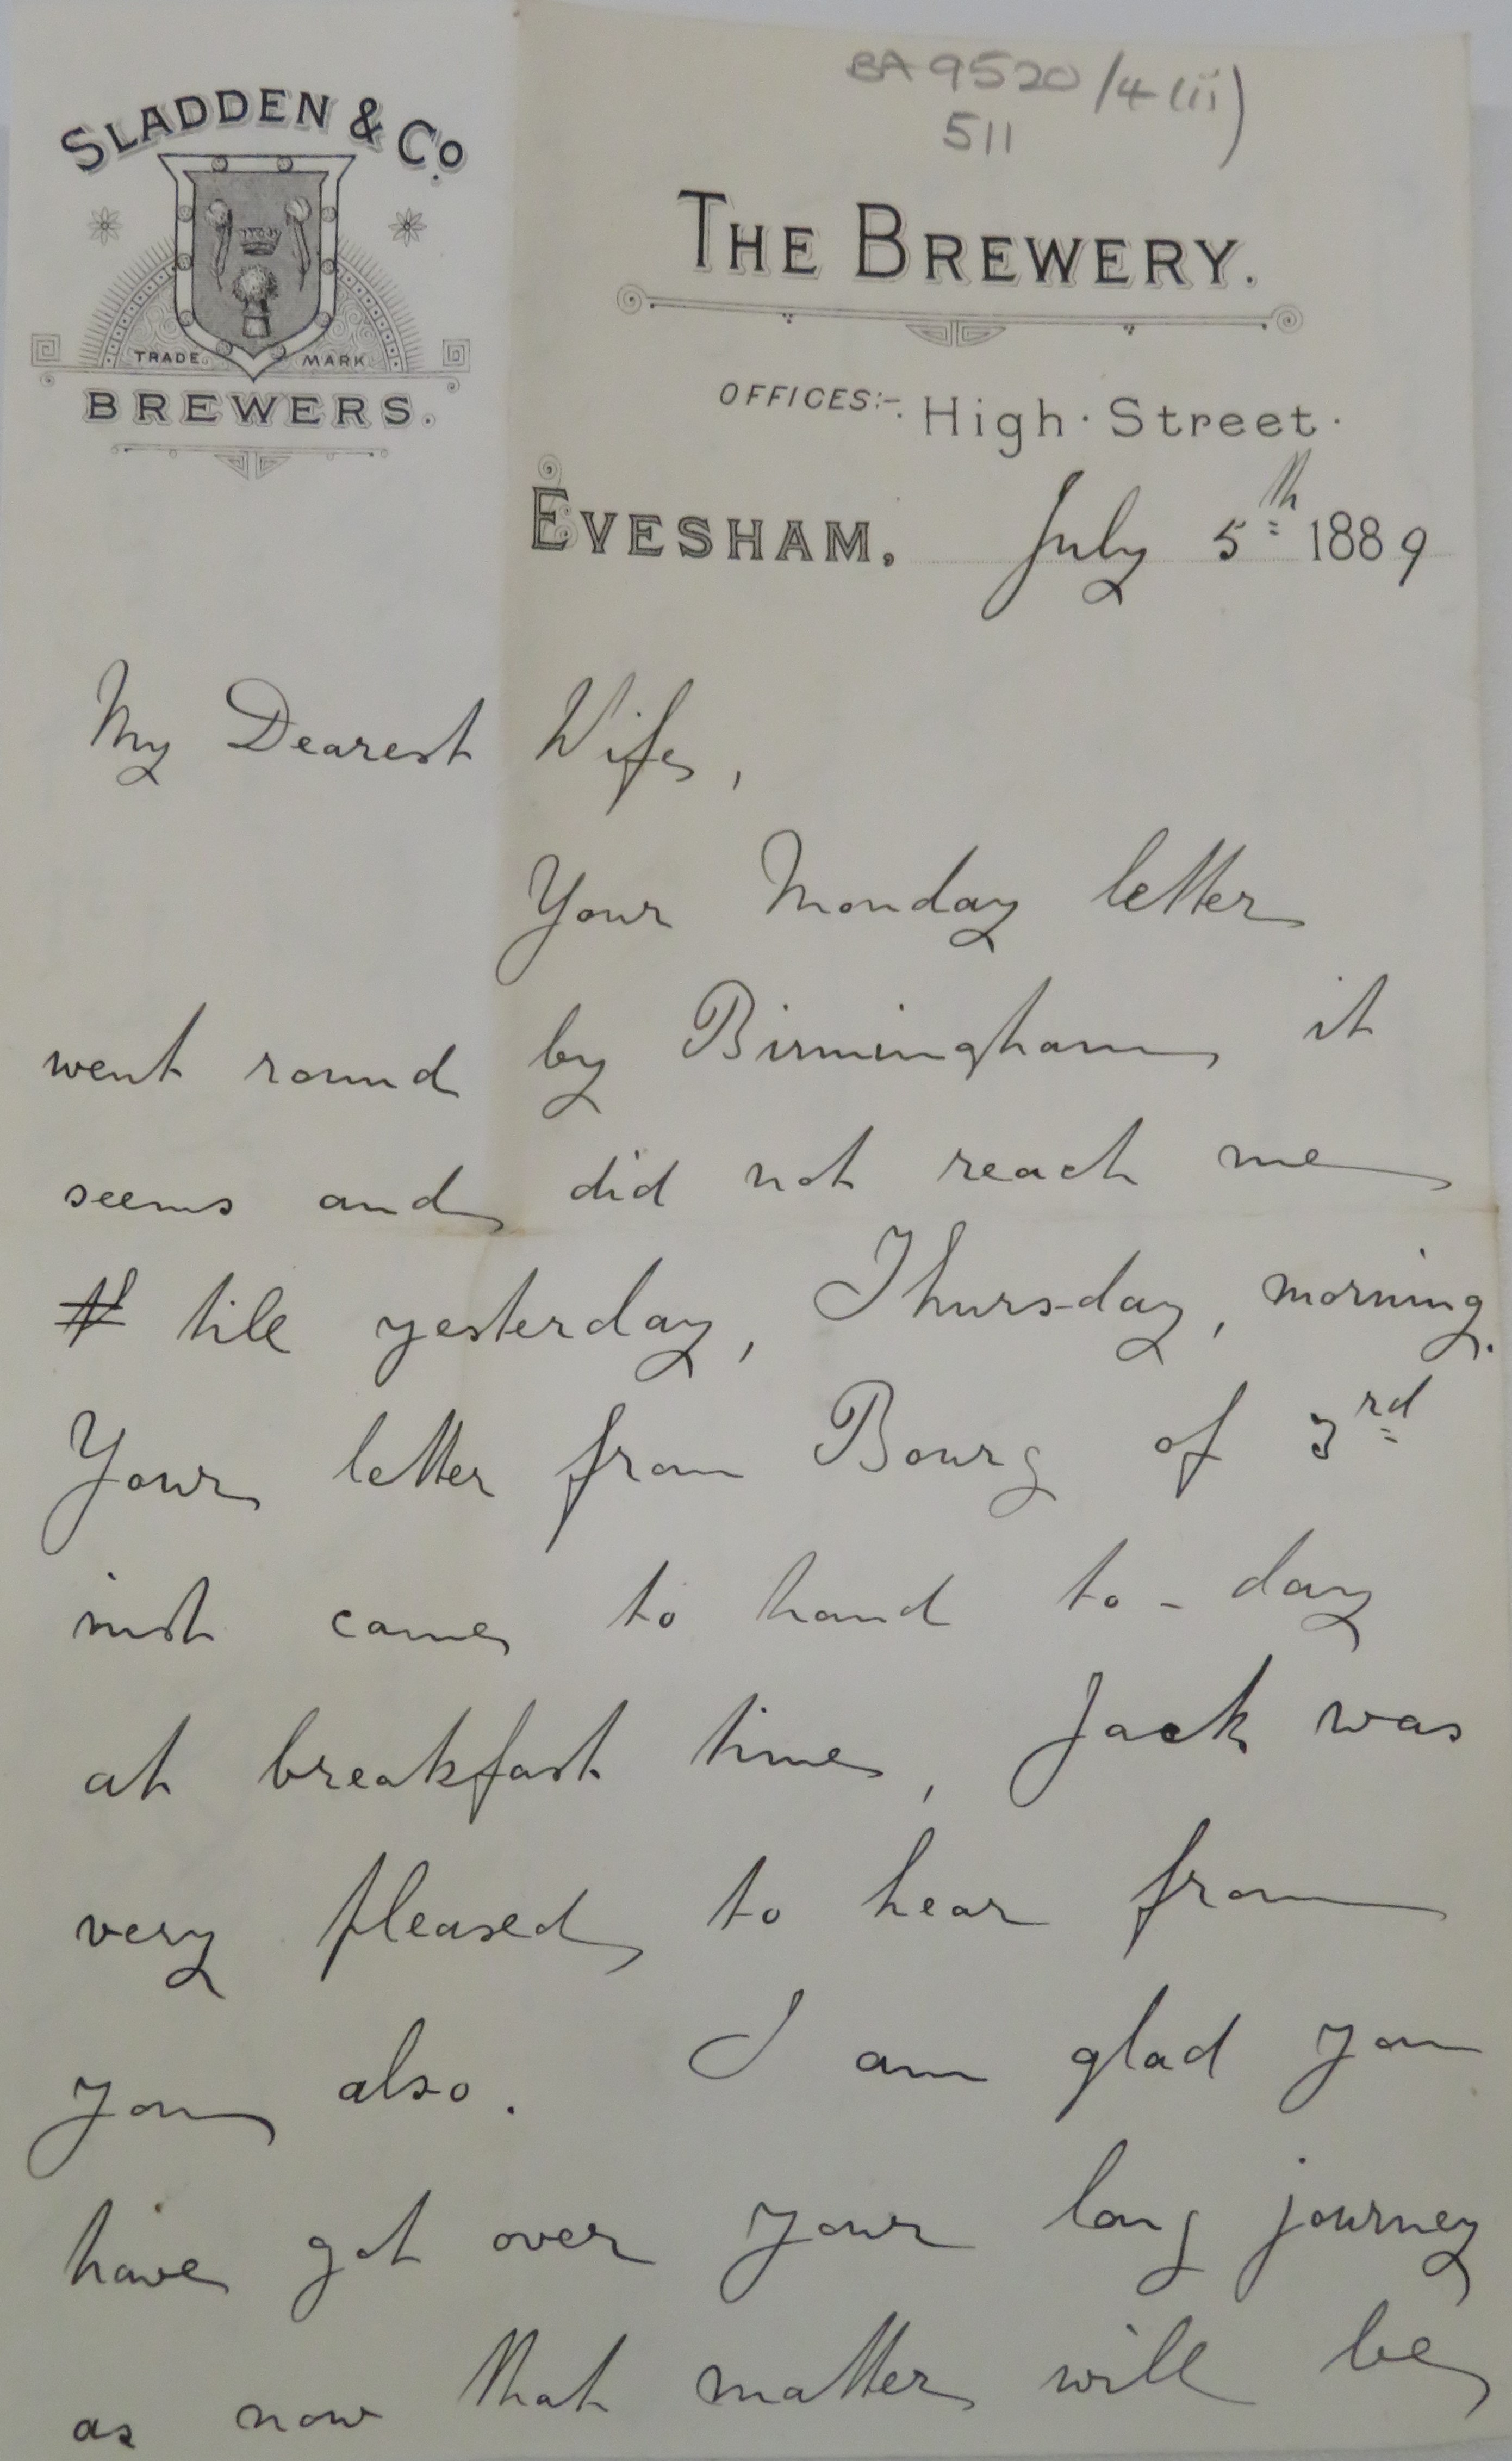 BA 9520/4(ii)
511
SLADDEN & Co.
TRADE MARK
BREWERS.
THE BREWERY.
OFFICES:- High Street.
EVESHAM. July 5th 1889
My Dearest Wife,
Your Monday letter
went round by Birmingham it
seems and did not reach me
till yesterday, Thursday, morning.
Your letter from Bourg of 3rd
inst came to hand to-day
at breakfast time, Jack was
very pleased to hear from
you also. I am glad you
have got over your long journey
as now that matter will be